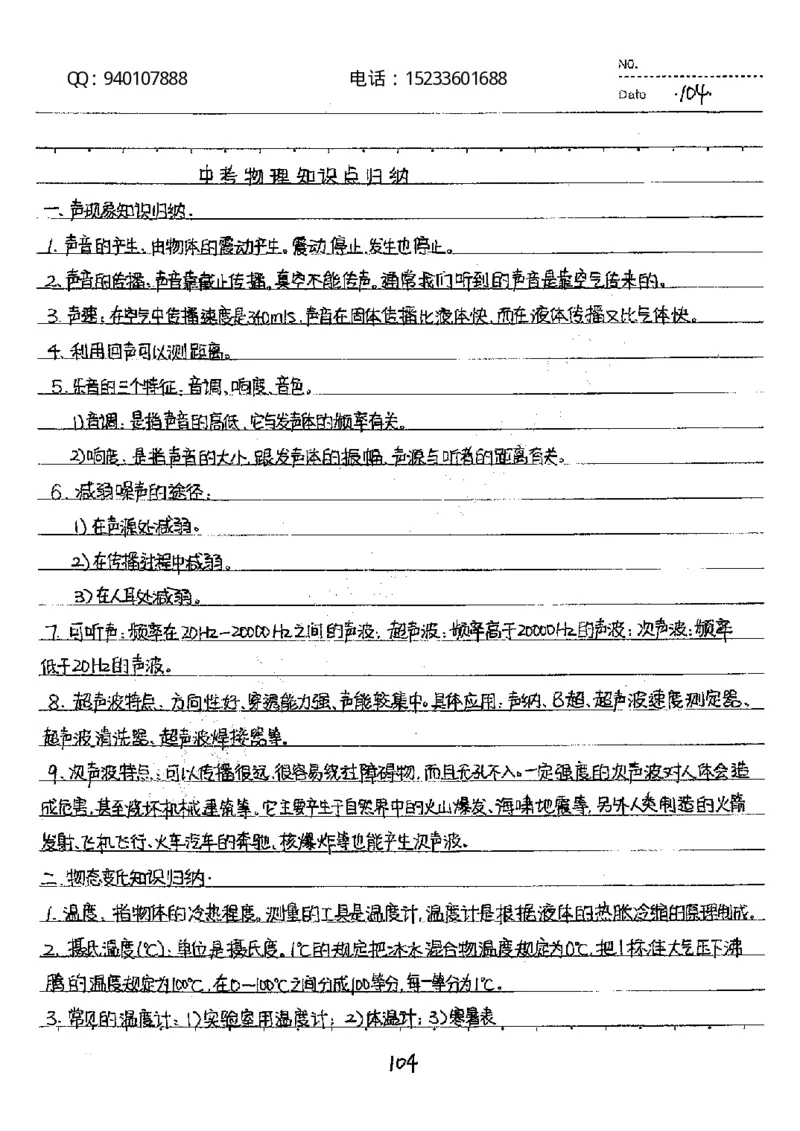 QQ：940107888 电话：15233601688 NO.
Date ·104·
中考物理知识点归纳
一、声现象知识归纳.
1. 声音的产生：由物体的震动产生。震动停止,发生也停止。
2. 声音的传播：声音靠截止传播。真空不能传声。通常我们听到的声音是靠空气传来的。
3. 声速：在空气中传播速度是340m/s,声音在固体传播比液体快,而在液体传播又比气体快。
4. 利用回声可以测距离。
5. 乐音的三个特征：音调、响度、音色。
1)音调：是指声音的高低,它与发声体的频率有关。
2)响度：是指声音的大小,跟发声体的振幅、声源与听者的距离有关。
6. 减弱噪声的途径：
1)在声源处减弱。
2)在传播过程中减弱。
3)在人耳处减弱。
7. 可听声：频率在20Hz—20000Hz之间的声波；超声波：频率高于20000Hz的声波；次声波：频率
低于20Hz的声波。
8. 超声波特点：方向性好、穿透能力强、声能较集中。具体应用：声纳、B超、超声波速度测定器、
超声波清洗器、超声波焊接器等。
9. 次声波特点：可以传播很远,很容易绕过障碍物,而且无孔不入。一定强度的次声波对人体会造
成危害,甚至破坏机械建筑等。它主要产生于自然界中的火山爆发、海啸地震等,另外人类制造的火箭
发射、飞机飞行、火车汽车的奔驰、核爆炸等也能产生次声波。
二、物态变化知识归纳.
1. 温度：指物体的冷热程度。测量的工具是温度计,温度计是根据液体的热胀冷缩的原理制成。
2. 摄氏温度(℃)：单位是摄氏度。1℃的规定把冰水混合物温度规定为0℃,把1标准大气压下沸
腾的温度规定为100℃,在0—100℃之间分成100等分,每一等分为1℃。
3. 常见的温度计：1)实验室用温度计；2)体温计；3)寒暑表
104